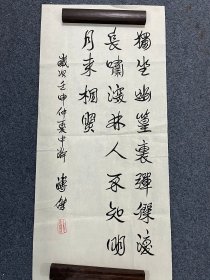 獨坐幽篁裏彈琴復
長嘯深林人不知明
月来相照
歲次壬申仲夏中浣 溥傑